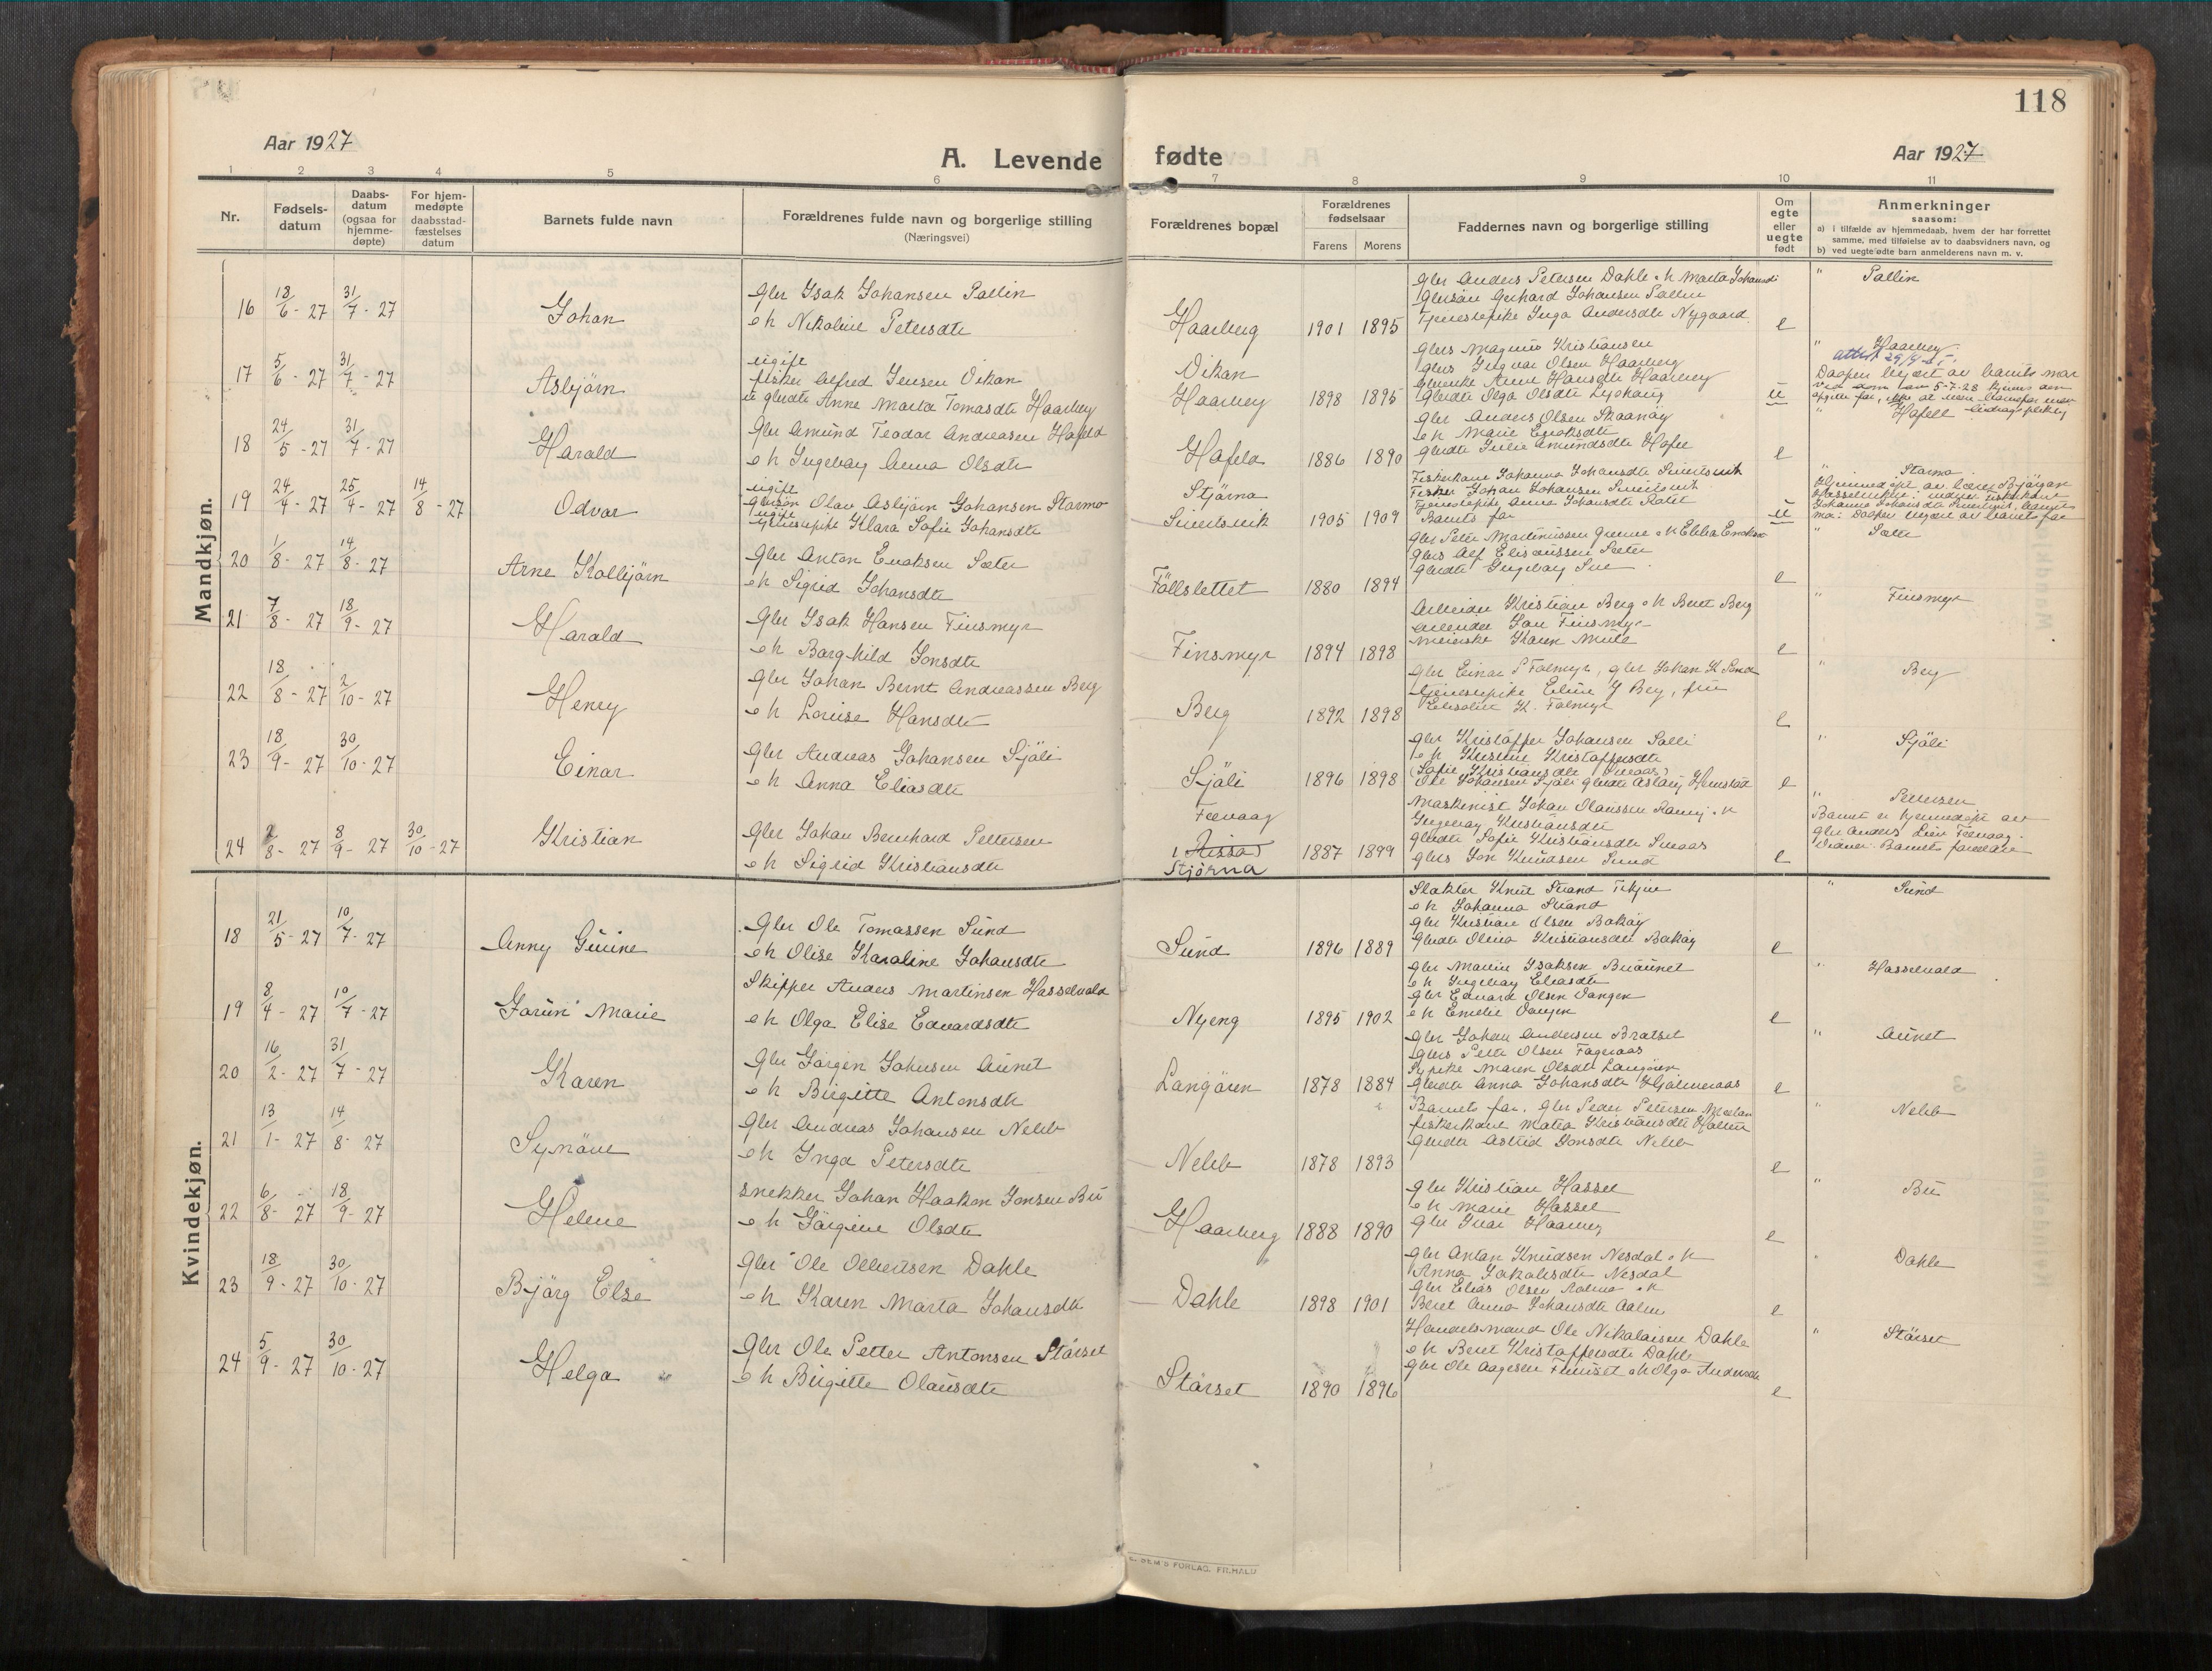 118
Aar 1927
A. Levende fødte
Aar 1927
1 2 3 4 5 6 7 8 9 10 11
Nr.
Fødsels-
datum
Daabs-
datum
(ogsaa for
hjemme-
døpte)
For hjem-
medøpte
daabsstad-
fæstelses
datum
Barnets fulde navn
Forældrenes fulde navn og borgerlige stilling
(Næringsvei)
Forældrenes bopæl
Forældrenes
fødselsaar
Farens Morens
Faddernes navn og borgerlige stilling
Om
egte
eller
uegte
født
Anmerkninger
saasom:
a) i tilfælde av hjemmedaab, hvem der har forrettet
samme, med tilføielse av to daabsvidners navn, og
b) ved uegte fødte barn anmelderens navn m. v.
Mandkjøn.
16 18/6 - 27 31/7 - 27 Johan
Gbr Isak Johansen Sallin
o h Nikoline Petersdtr
Haarberg 1901 1895
Gbr Anders Petersen Dahle o h Marta Johansdt
Gbrsøn Gerhard Johansen Sallin
Tjenestepike Inga Andersdtr Nygaard
e " Sallin
17 5/6 - 27 31/7 - 27 Asbjørn
ugift
fisker Alfred Jensen Vikan
u gbrdtr Anne Marta Tomasdtr Haarberg
Vikan
Haarberg 1898 1895
Gbrs Magnus Kristiansen
Gbrs Ingvar Olsen Haarberg
Hansdtr Haarberg
Gbrdtr Olga Olsdtr
u " Haarberg
Daapen begjært av barnets mor
18 24/5 - 27 31/7 - 27 Harald
Gbr Amund Teodor Andreasen Hafeld
o h Ingebørg Anna Olsdtr
Hafeld 1886 1890
Gbr Anders Olsen Skaanøy
o h Marie Eriksdtr
Gbrdtr Julie Amundsdtr
e "
19 24/4 - 27 25/4 - 27 14/8 - 27 Odvar
ugift
Gbrsøn Olav Asbjørn Johansen Stormo
ugift
Tjenestepike Klara Sofie Johansdtr
Stjørna
1905 1909
Fiskerkone Johanna Johansdtr
Fisker Johan Johansen
Tjenestepike Anna Johansdtr
Barnets far
u " Stormo
Hjemmedøpt av lærer
mor: Daapen begjært av barnets far
20 1/8 - 27 14/8 - 27 Arne Kolbjørn
Gbr Anton Eriksen Sæter
o h Sigrid Johansdtr
Fallslettet 1880 1894
Gbrs Alf Eliseussen Sæter
Gbrdtr Ingebørg
e " Sæter
21 7/8 - 27 18/9 - 27 Harald
Gbr Isak Hansen Finsmyr
o h Borghild Jonsdtr
Finsmyr 1894 1898
Arbeider Kristian Berg o h Beret Berg
Arbeider Jon Finsmyr
Meierske Karen
e " Finsmyr
22 18/8 - 27 2/10 - 27 Henry
Gbr Johan Bernt Andreassen Berg
o h Lovise Hansdtr
Berg 1892 1898
Gbr Einar P Falmyr, gbr Johan K
tjenestepike Eline J Berg, fru
K. Falmyr
e " Berg
23 18/9 - 27 30/10 - 27 Einar
Gbr Andreas Johansen Sjåli
o h Anna Eliasdtr
Sjåli 1896 1898
Gbr Kristoffer Johansen Salli
o h Kristoffersdtr
(Sofie Kristiansdtr Sneaas)
Ole Johansen Sjåli gbrdtr Aslaug
e " Sjåli
24 8 - 27 8/9 - 27 30/10 - 27 Kristian
Gbr Johan Bernhard Pettersen
o h Sigrid Kristiansdtr
Feevaag
i Rissa
Stjørna 1887 1899
Maskinist Johan Olaussen
Ingebørg Kristiansdtr
Gbrdtr Sofie Kristiansdtr Sneaas
Gbrs Jon Knudsen Sund
e " Pettersen
Barnet er hjemmedøpt av
gbr Anders Feevaag.
Vidner: Barnets forældre
Kvindekjøn.
18 21/5 - 27 10/7 - 27 Anny Guine
Gbr Ole Tomassen Sund
o h Olise Karoline Johansdtr
Sund 1896 1889
Slakter Knut Strand
o h Johanna Strand
Gbr Kristian Olsen Bakøy
Gbrdtr Olina Kristiansdtr Bakøy
e " Sund
19 8/4 - 27 10/7 - 27 Jorun Marie
Skipper Anders Martinsen Hasselvold
o h Olga Elise Edvardsdtr
Nyeng 1895 1902
Gbr Martin Isaksen
o h Ingebørg Eliasdtr
Gbr Edvard Olsen Vangen
o h Emelie Vangen
e " Hasselvold
20 16/2 - 27 31/7 - 27 Karen
Gbr Jørgen Johnsen Aunet
o h Birgitte Antonsdtr
Langøren 1878 1884
Gbr Johan Andersen Bratset
Gbrs Petter Olsen Fageraas
Sypike Maren Olsdtr Langøren
Gbrdtr Anna Johansdtr Hjalmeraas
e " Aunet
21 13/1 - 27 14/8 - 27 Synøve
Gbr Andreas Johansen Nebb
o h Inga Petersdtr
Nebb 1878 1893
Barnets far. Gbr Peder Petersen
fiskerkone Marta Kristiansdtr Halten
Gbrdtr Astrid Jonsdtr Nebb
e " Nebb
22 6/8 - 27 18/9 - 27 Helene
Snekker Johan Haakon Jonsen Bu
o h Jørgine Olsdtr
Haarberg 1888 1890
Gbr Kristian Hassel
o h Marie Hassel
Gbr Ivar Haarberg
e " Bu
23 18/9 - 27 30/10 - 27 Bjørg Else
Gbr Ole Albertsen Dahle
o h Karen Marta Johansdtr
Dahle 1898 1901
Gbr Anton Knudsen Nesdal o h
Anna Jakobsdtr Nesdal
Gbr Elias Olsen Aalmo o h
Beret Anna Johansdtr Aalmo
e " Dahle
24 5/9 - 27 30/10 - 27 Helga
Gbr Ole Petter Antonsen Størset
o h Birgitte Olausdtr
Størset 1890 1896
Handelsmand Ole Nikolaisen Dahle
o h Beret Kristoffersdtr Dahle
Gbr Ole Aagesen o h Olga Andersdtr
e " Størset
FORLAG. FR.HALD